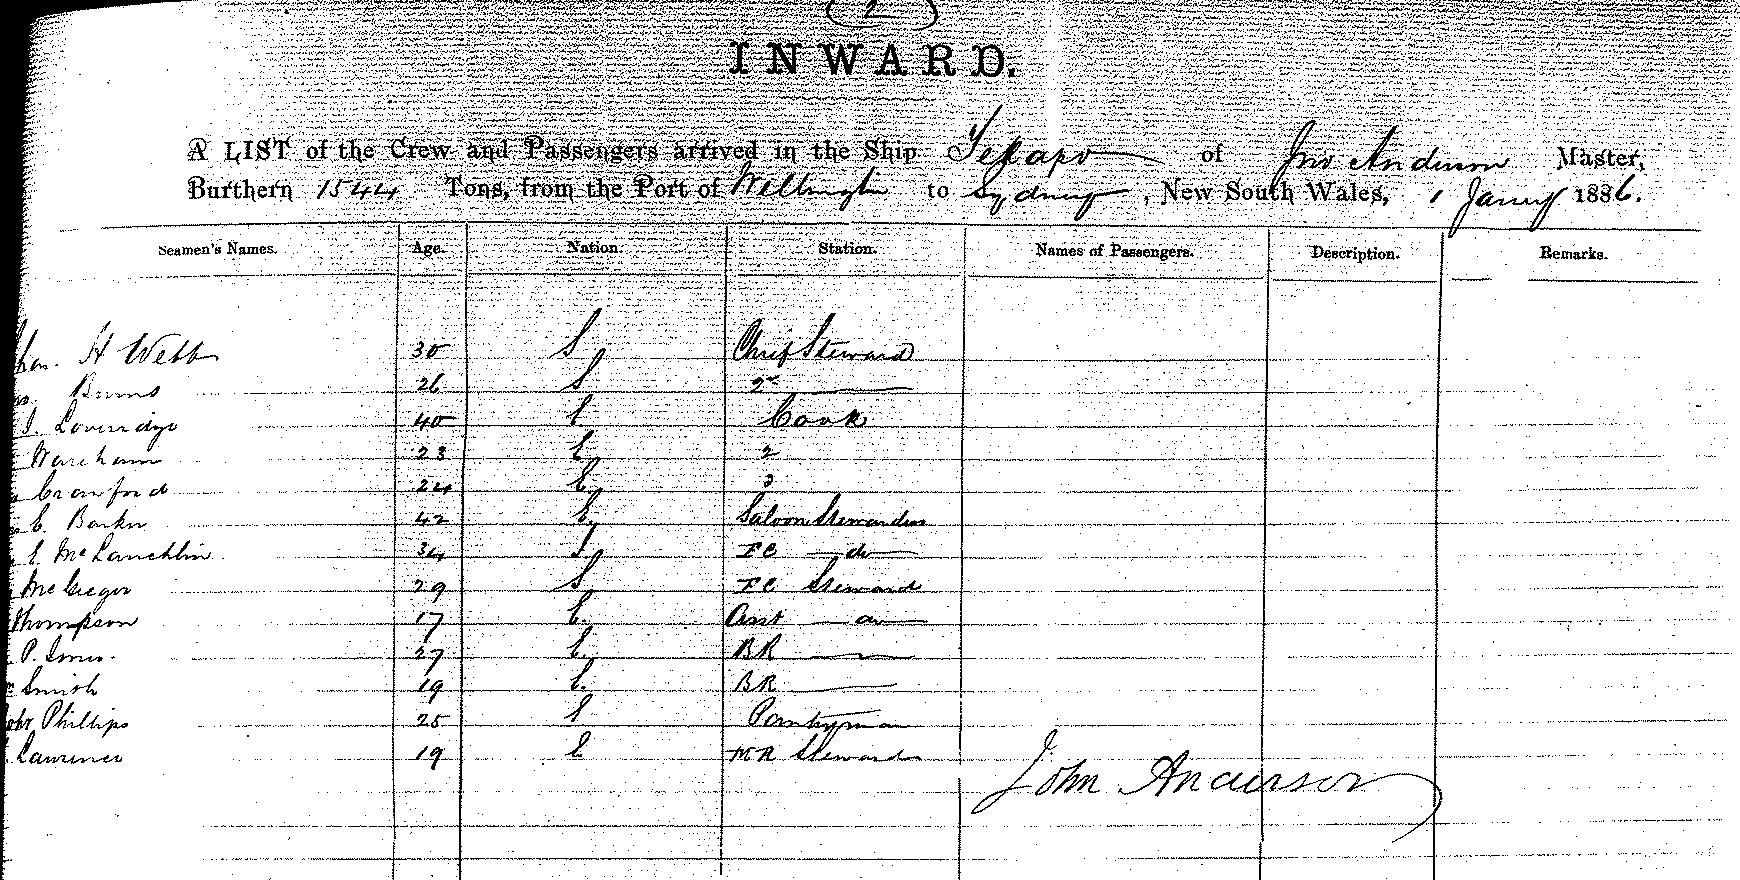 2
INWARD.
A LIST of the Crew and Passengers arrived in the Ship Tekapo of Jno Anderson Master,
Burthern 1544 Tons, from the Port of Wellington to Sydney, New South Wales, 1 Jany 1886.
Seamen's Names. Age. Nation. Station. Names of Passengers. Description. Remarks.
H Webb 30 S Chief Steward
Burns 26 S 2nd
Loveridge 40 Cook
Wareham 23 E 2
Crawford 24 E 3
E. Barker 42 E Saloon Stewardess
E McLauchlin 34 FC do
McGregor 29 S FC Steward
Thompson 17 E. Asst do
P. Jones. 27 E BR
Smith 19 E. BR
Phillips 25 Pantryman
Lawrence 19 E Steward
John Anderson